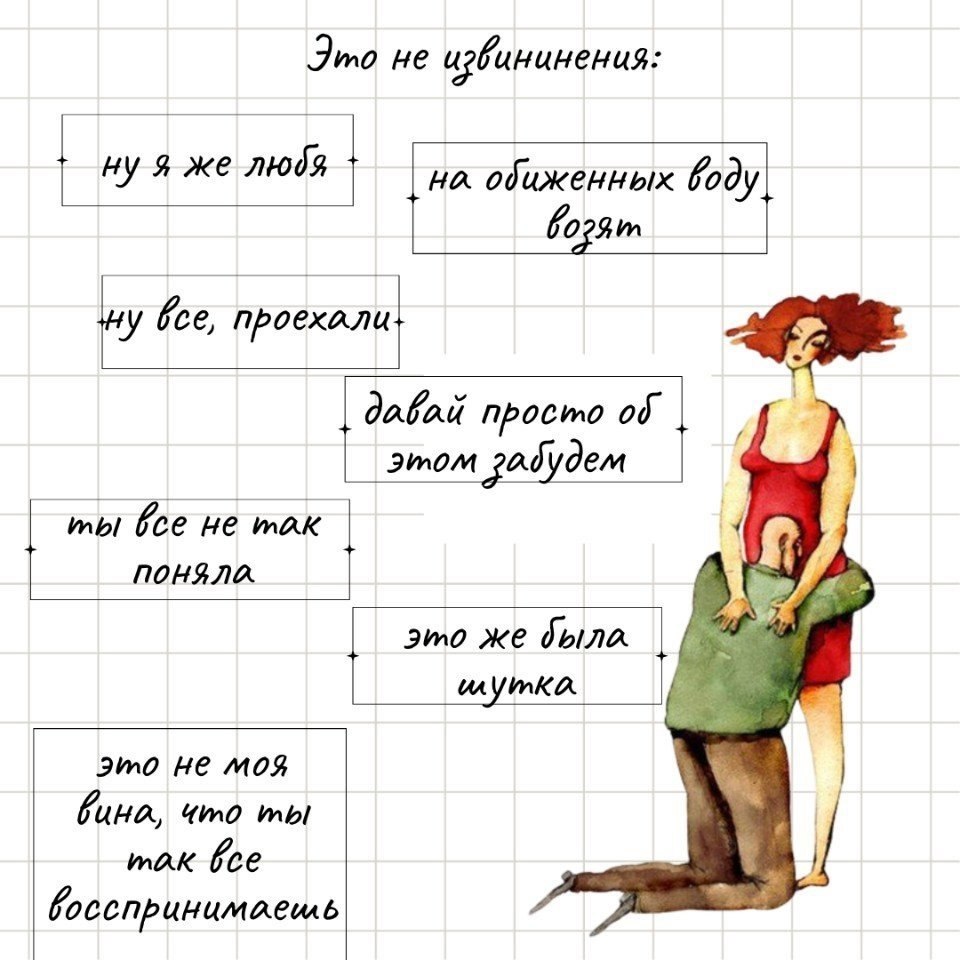 Это не извининения:
ну я же любя
на обиженных воду
возят
ну все, проехали
давай просто об
этом забудем
ты все не так
поняла
это же была
шутка
это не моя
вина, что ты
так все
восспринимаешь